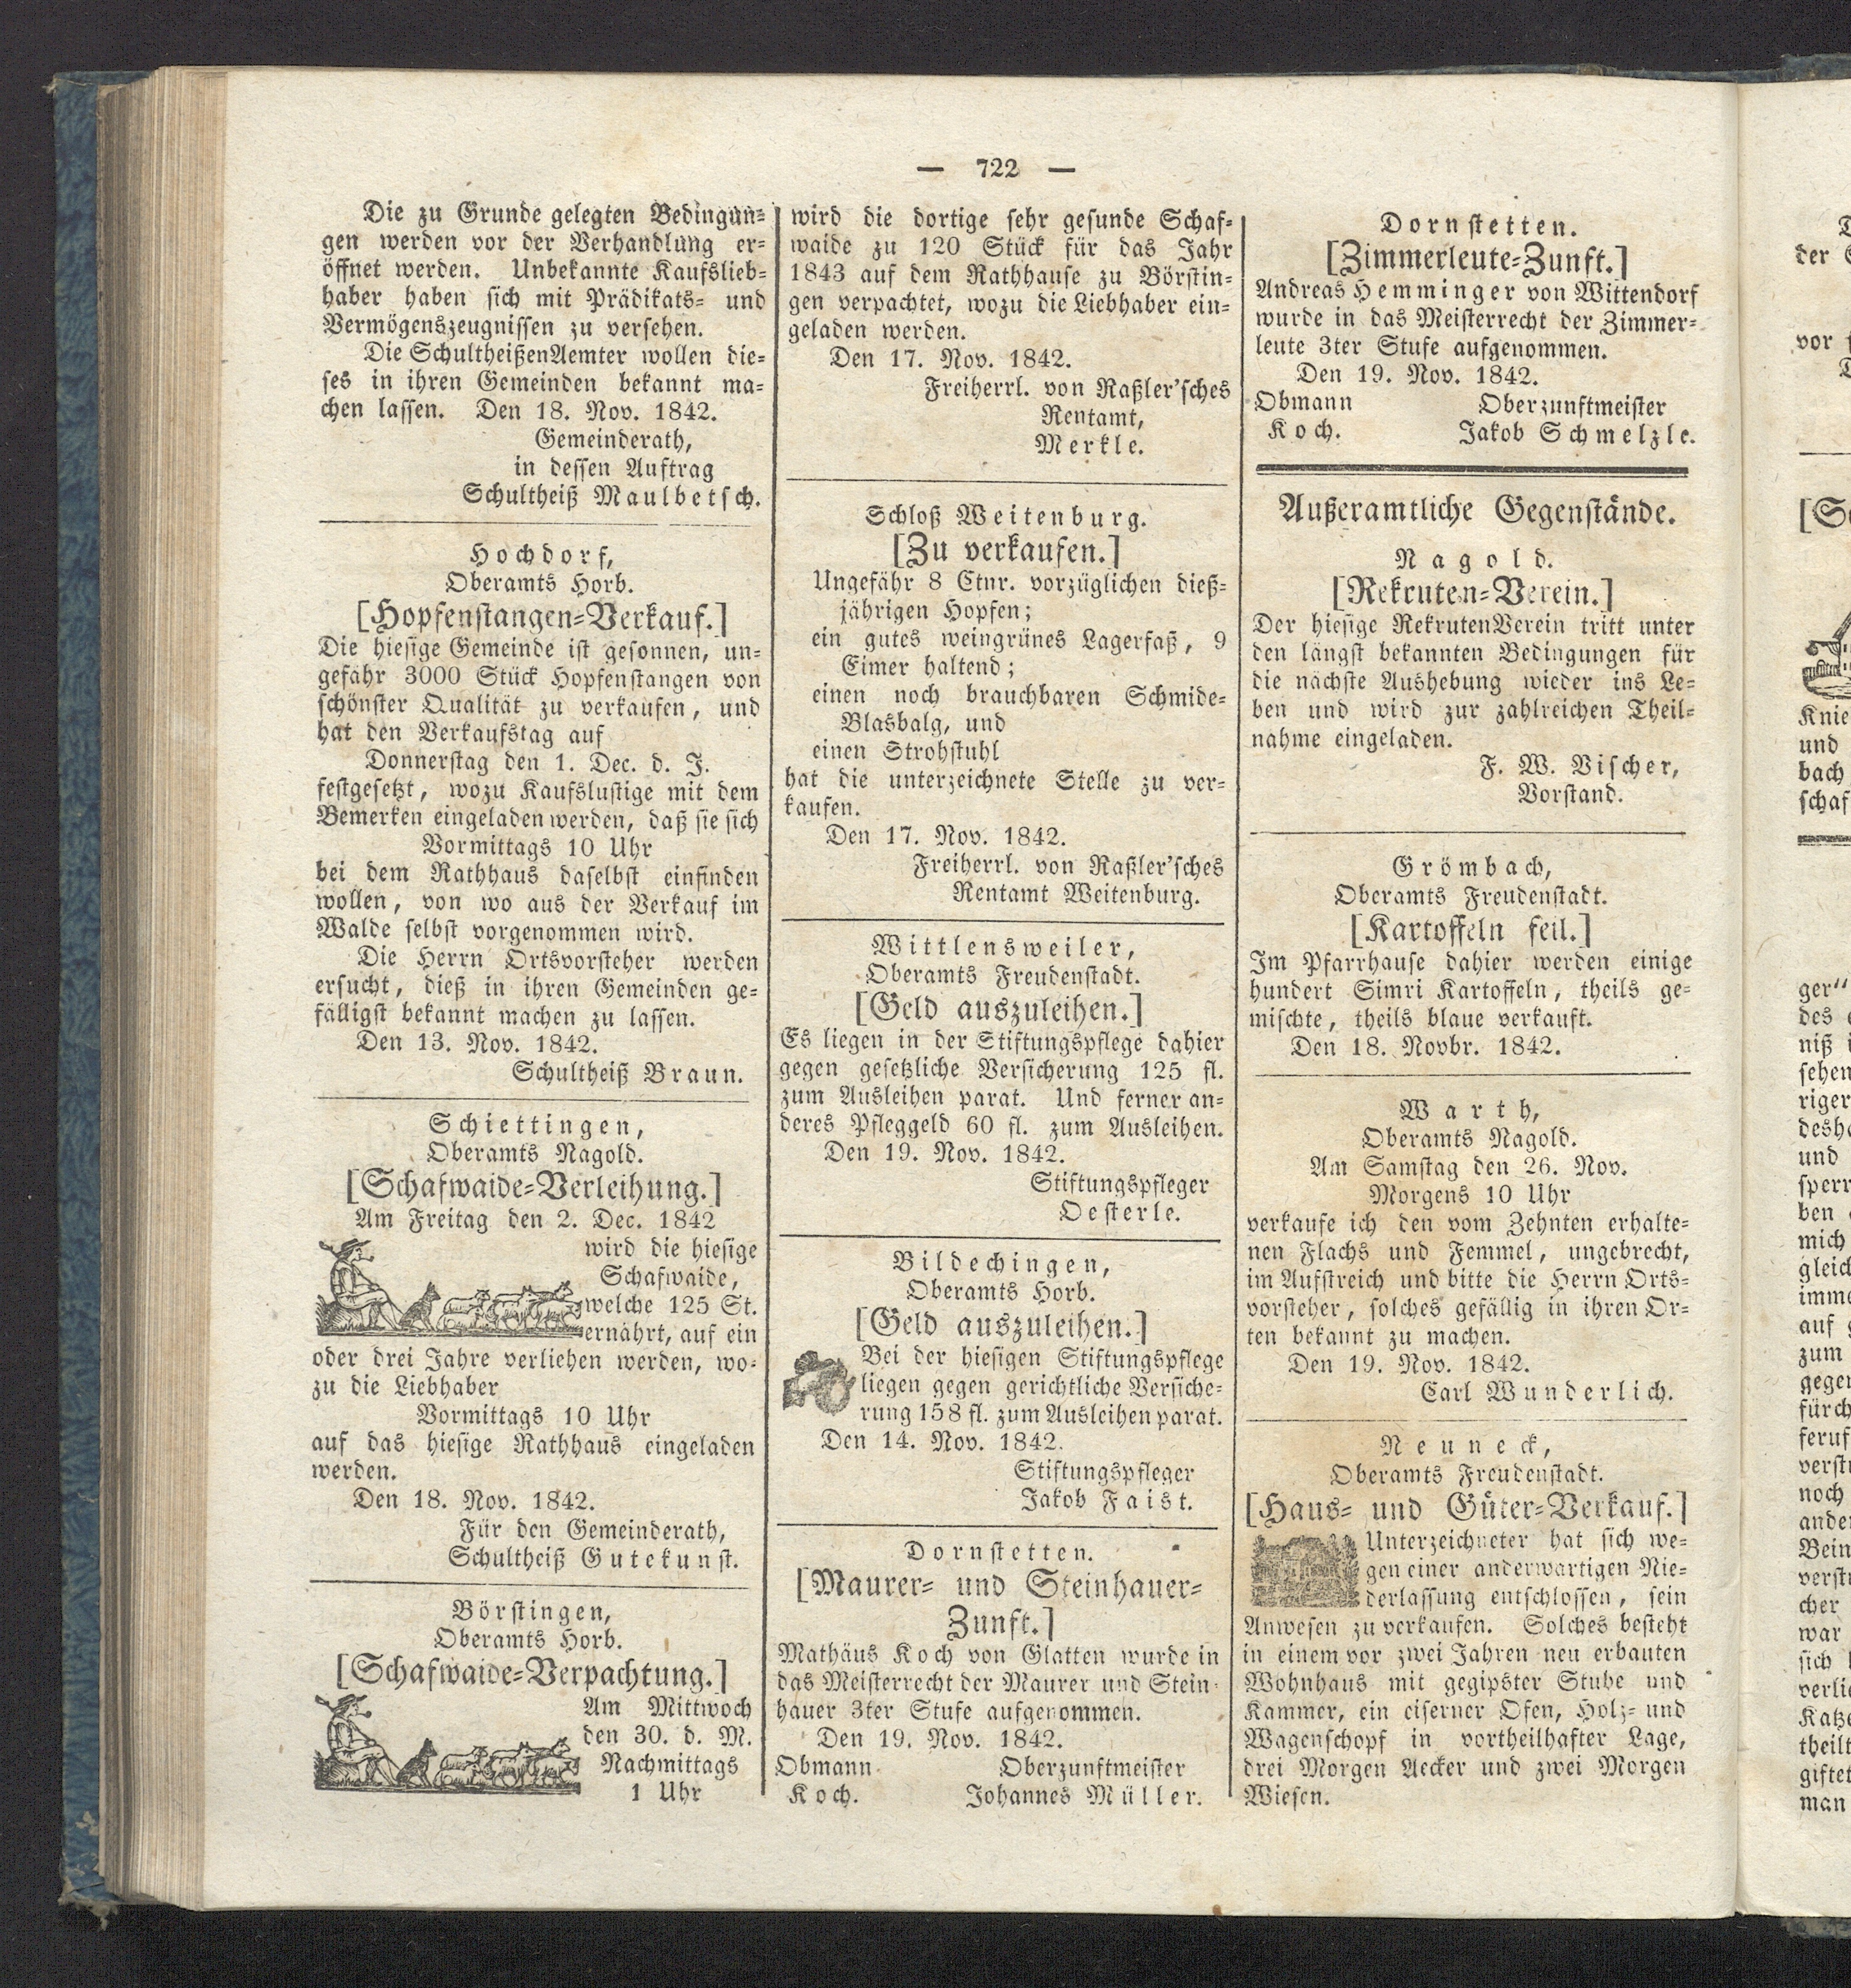 — 722 —
Die zu Grunde gelegten Bedingun-
gen werden vor der Verhandlung er-
öffnet werden. Unbekannte Kaufslieb-
haber haben sich mit Prädikats- und
Vermögenszeugnissen zu versehen.
Die SchultheißenAemter wollen die-
ses in ihren Gemeinden bekannt ma-
chen lassen. Den 18. Nov. 1842.
Gemeinderath,
in dessen Auftrag
Schultheiß Maulbetsch.
Hochdorf,
Oberamts Horb.
[Hopfenstangen-Verkauf.]
Die hiesige Gemeinde ist gesonnen, un-
gefähr 3000 Stück Hopfenstangen von
schönster Qualität zu verkaufen, und
hat den Verkaufstag auf
Donnerstag den 1. Dec. d. J.
festgesetzt, wozu Kaufslustige mit dem
Bemerken eingeladen werden, daß sie sich
Vormittags 10 Uhr
bei dem Rathhaus daselbst einfinden
wollen, von wo aus der Verkauf im
Walde selbst vorgenommen wird.
Die Herrn Ortsvorsteher werden
ersucht, dieß in ihren Gemeinden ge-
fälligst bekannt machen zu lassen.
Den 13. Nov. 1842.
Schultheiß Braun.
Schiettingen,
Oberamts Nagold.
[Schafwaide-Verleihung.]
Am Freitag den 2. Dec. 1842
wird die hiesige
Schafwaide,
welche 125 St.
ernährt, auf ein
oder drei Jahre verliehen werden, wo-
zu die Liebhaber
Vormittags 10 Uhr
auf das hiesige Rathhaus eingeladen
werden.
Den 18. Nov. 1842.
Für den Gemeinderath,
Schultheiß Gutekunst.
Börstingen,
Oberamts Horb.
[Schafwaide-Verpachtung.]
Am Mittwoch
den 30. d. M.
Nachmittags
1 Uhr
wird die dortige sehr gesunde Schaf-
waide zu 120 Stück für das Jahr
1843 auf dem Rathhause zu Börstin-
gen verpachtet, wozu die Liebhaber ein-
geladen werden.
Den 17. Nov. 1842.
Freiherrl. von Raßler'sches
Rentamt,
Merkle.
Schloß Weitenburg.
[Zu verkaufen.]
Ungefähr 8 Ctnr. vorzüglichen dieß-
jährigen Hopfen;
ein gutes weingrünes Lagerfaß, 9
Eimer haltend;
einen noch brauchbaren Schmide-
Blasbalg, und
einen Strohstuhl
hat die unterzeichnete Stelle zu ver-
kaufen.
Den 17. Nov. 1842.
Freiherrl. von Raßler'sches
Rentamt Weitenburg.
Wittlensweiler,
Oberamts Freudenstadt.
[Geld auszuleihen.]
Es liegen in der Stiftungspflege dahier
gegen gesetzliche Versicherung 125 fl.
zum Ausleihen parat. Und ferner an-
deres Pfleggeld 60 fl. zum Ausleihen.
Den 19. Nov. 1842.
Stiftungspfleger
Oesterle.
Bildechingen,
Oberamts Horb.
[Geld auszuleihen.]
Bei der hiesigen Stiftungspflege
liegen gegen gerichtliche Versiche-
rung 158 fl. zum Ausleihen parat.
Den 14. Nov. 1842.
Stiftungspfleger
Jakob Faist.
Dornstetten.
[Maurer- und Steinhauer-
Zunft.]
Mathäus Koch von Glatten wurde in
das Meisterrecht der Maurer und Stein-
hauer 3ter Stufe aufgenommen.
Den 19. Nov. 1842.
Obmann Oberzunftmeister
Koch. Johannes Müller.
Dornstetten.
[Zimmerleute-Zunft.]
Andreas Hemminger von Wittendorf
wurde in das Meisterrecht der Zimmer-
leute 3ter Stufe aufgenommen.
Den 19. Nov. 1842.
Obmann Oberzunftmeister
Koch. Jakob Schmelzle.
Außeramtliche Gegenstände.
Nagold.
[Rekruten-Verein.]
Der hiesige RekrutenVerein tritt unter
den längst bekannten Bedingungen für
die nächste Aushebung wieder ins Le-
ben und wird zur zahlreichen Theil-
nahme eingeladen.
F. W. Vischer,
Vorstand.
Grömbach,
Oberamts Freudenstadt.
[Kartoffeln feil.]
Im Pfarrhause dahier werden einige
hundert Simri Kartoffeln, theils ge-
mischte, theils blaue verkauft.
Den 18. Novbr. 1842.
Warth,
Oberamts Nagold.
Am Samstag den 26. Nov.
Morgens 10 Uhr
verkaufe ich den vom Zehnten erhalte-
nen Flachs und Femmel, ungebrecht,
im Aufstreich und bitte die Herrn Orts-
vorsteher, solches gefällig in ihren Or-
ten bekannt zu machen.
Den 19. Nov. 1842.
Carl Wunderlich.
Neuneck,
Oberamts Freudenstadt.
[Haus- und Güter-Verkauf.]
Unterzeichneter hat sich we-
gen einer anderwärtigen Nie-
derlassung entschlossen, sein
Anwesen zu verkaufen. Solches besteht
in einem vor zwei Jahren neu erbauten
Wohnhaus mit gegipster Stube und
Kammer, ein eiserner Ofen, Holz- und
Wagenschopf in vortheilhafter Lage,
drei Morgen Aecker und zwei Morgen
Wiesen.
der
vor
Knie
und
bach
schaf
ger"
des
niß
sehen
riger
desh
und
sperr
ben
mich
gleich
imme
auf
zum
gegen
fürch
feruf
verst
noch
ander
Bein
verst
cher
war
sich
verlie
Katze
theilt
giftet
man